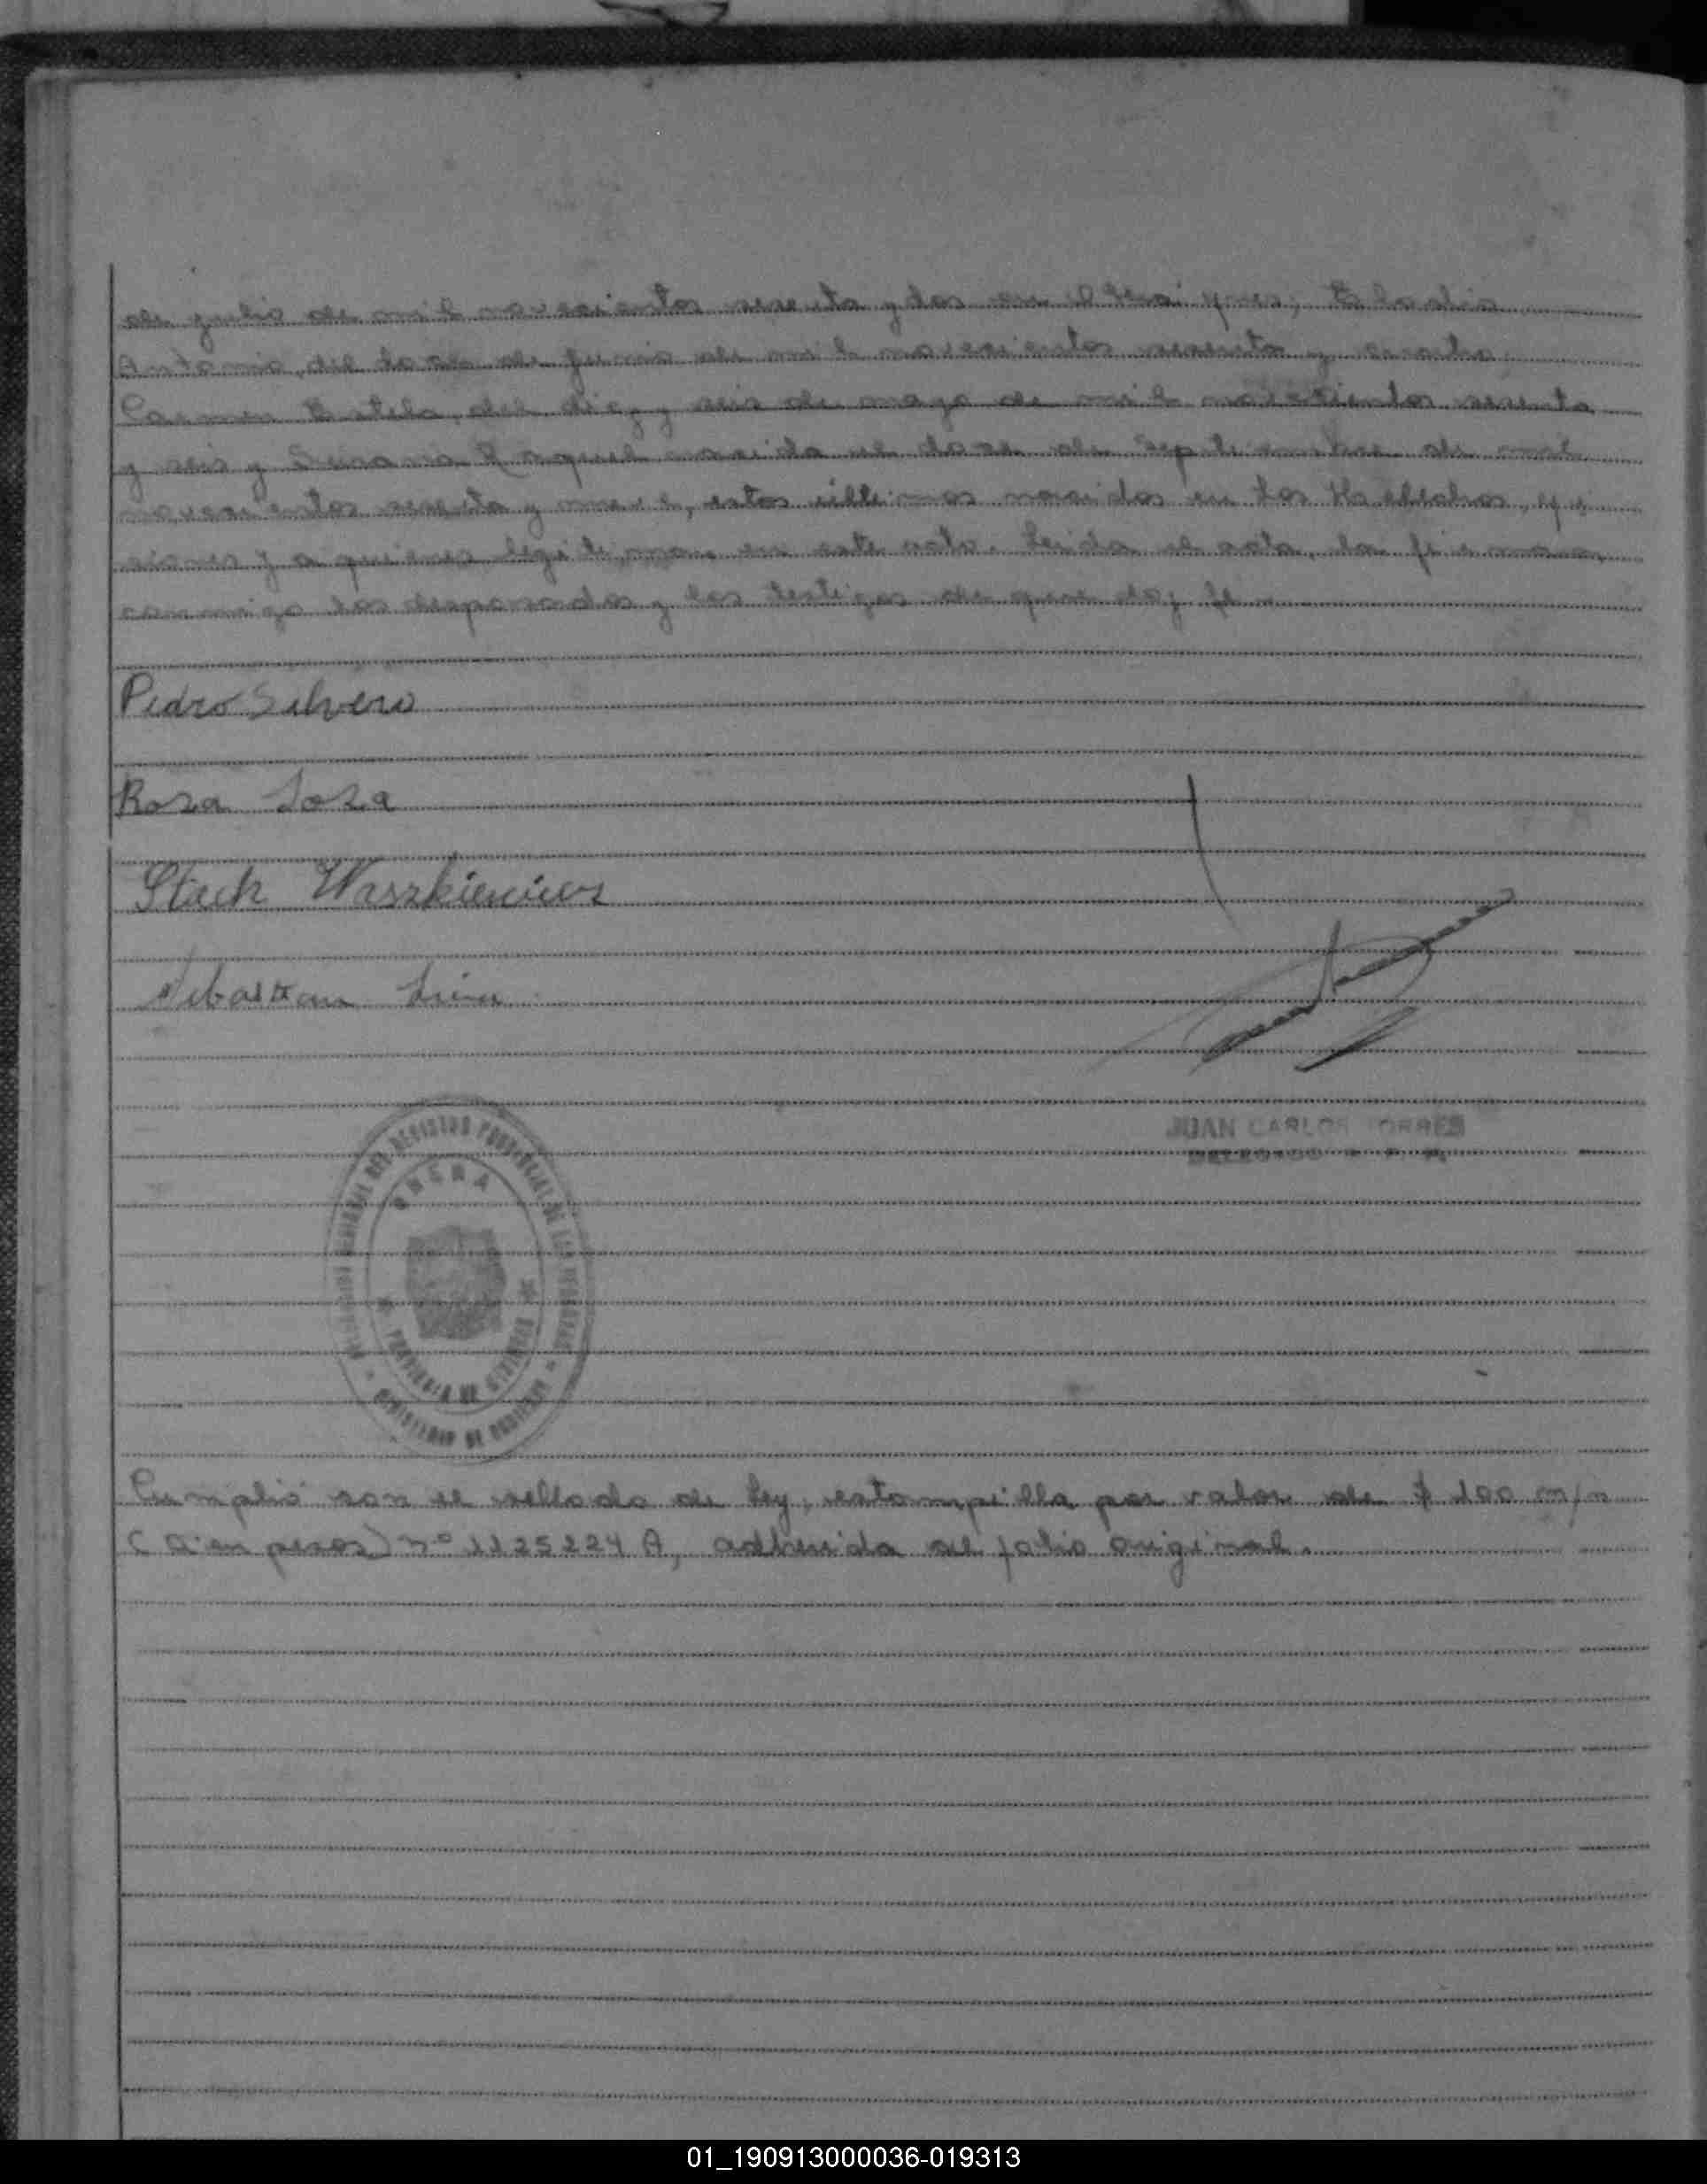 de julio de mil novecientos sesenta y dos en
Antonio, del doce de junio de mil novecientos sesenta y cuatro,
Carmen Estela, del diez y seis de mayo de mil novecientos sesenta
y seis y Susana Raquel nacida el doce de septiembre de mil
novecientos sesenta y nueve, estos últimos nacidos en Los Helechos, Mi
siones y a quienes legitiman en este acto. Leida el acta, la firman
conmigo los desposados y los testigos de que doy fe.
Pedro Silvero
Rosa Sosa
Stach
Sebastian
JUAN CARLOS TORRES
DELEGADO
PROVINCIA DE MISIONES
Cumplió con el sellado de ley, estampilla por valor de $ 100 m/n
(Cien pesos) nº 1125224 A, adherida al folio original.
01_190913000036-019313